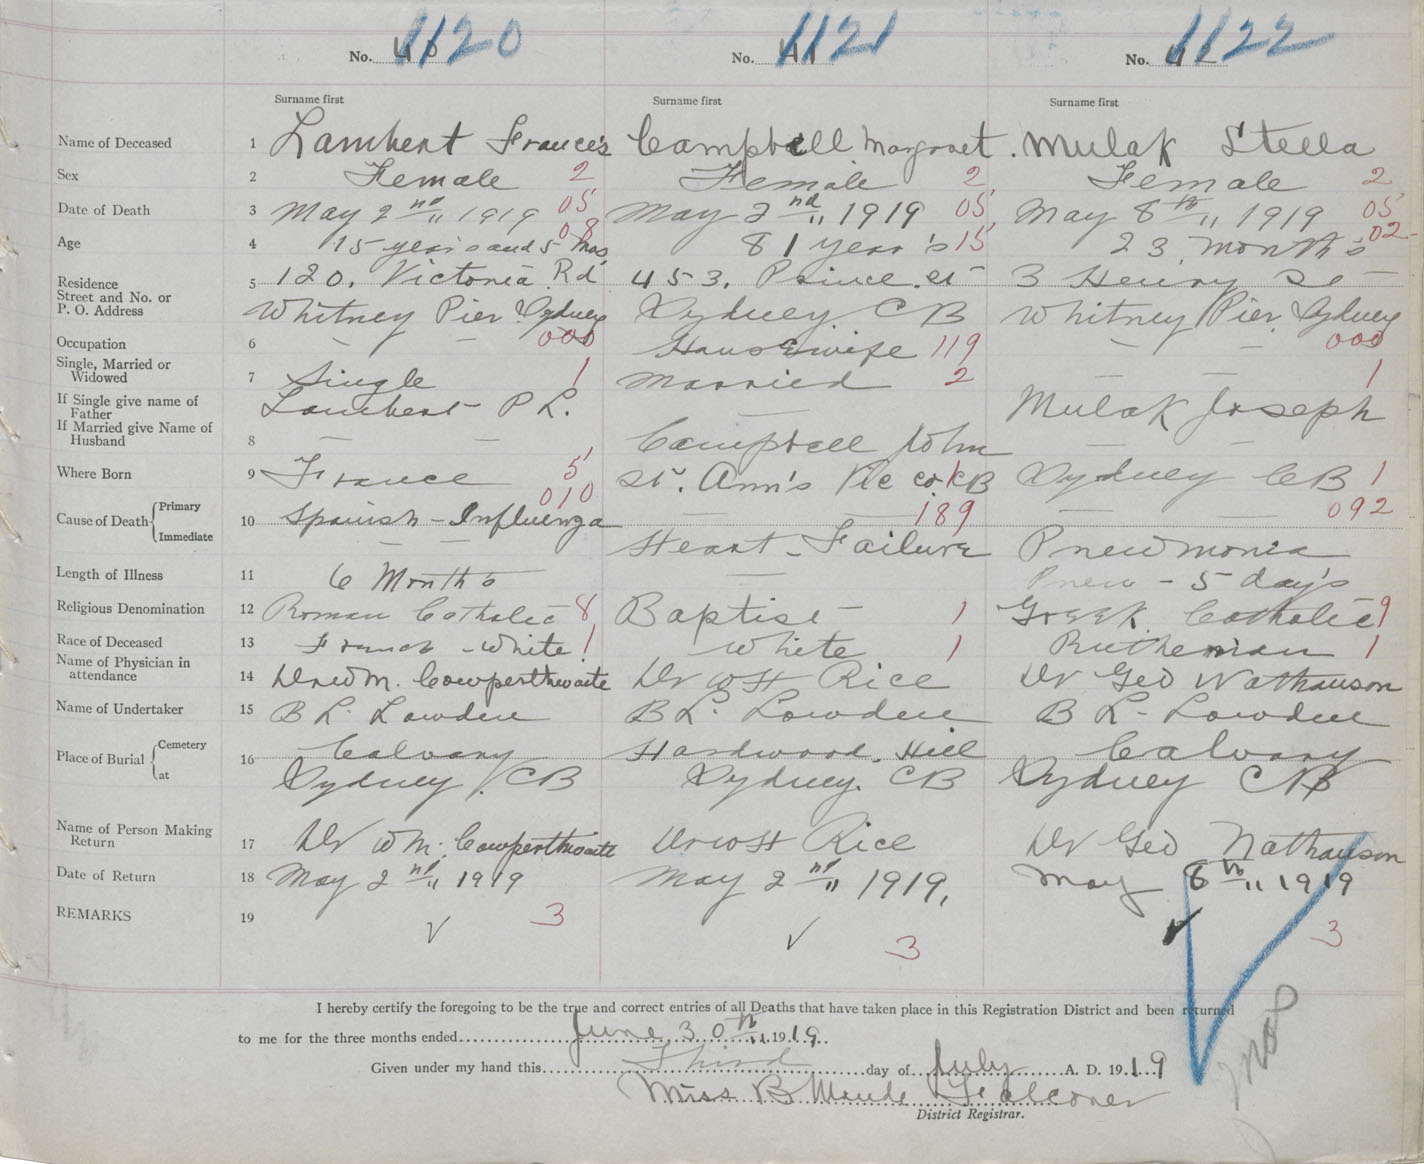 1120 1121 1122
No. 40 No. 41 No. 42
Surname first Surname first Surname first
Name of Deceased 1 Lambert Frances Campbell Margaret. Mulak Stella
Sex 2 Female 2 Female 2 Female 2
Date of Death 3 May 2nd 1919 05 May 2nd 1919 05 May 8th 1919 05
Age 4 15 year's and 5 Mos 08 81 year's 15 23 month's 02
Residence
Street and No. or
P. O. Address
5 120. Victoria Rd 453. Prince St 3 Henry St
Whitney Pier Sydney Sydney. CB Whitney Pier Sydney
Occupation 6 — — 000 Housewife 119 — — 000
Single, Married or
Widowed
7 Single 1 Married 2 — — 1
If Single give name of
Father
Lambert P L. — Mulak Joseph
If Married give Name of
Husband
8 — — Campbell John — —
Where Born 9 France 5 St. Ann's Pic Co. CB 1 Sydney CB 1
010 189 092
Cause of Death { Primary
Immediate
10 Spanish - Influenza — — — —
— — Heart - Failure Pneumonia
Length of Illness 11 6 Month's — Pneu - 5 day's
Religious Denomination 12 Roman Catholic 8 Baptist 1 Greek Catholic 9
Race of Deceased 13 French - White 1 White 1 Ruthenian 1
Name of Physician in
attendance
14 Dr W M. Cowperthwaite Dr W H Rice Dr Geo Nathanson
Name of Undertaker 15 B L. Lowden B L. Lowden B L- Lowden
Place of Burial { Cemetery
at
16 Calvary Hardwood. Hill Calvary
Sydney. CB Sydney. CB Sydney CB
Name of Person Making
Return
17 Dr W M. Cowperthwaite Dr W H Rice Dr Geo Nathanson
Date of Return 18 May 2nd 1919 May 2nd 1919, May 8th 1919
REMARKS 19 ✓ 3 ✓ 3 ✓ 3
I hereby certify the foregoing to be the true and correct entries of all Deaths that have taken place in this Registration District and been returned
to me for the three months ended June 30th 1919
Given under my hand this Third day of July A. D. 1919
Miss B Maude Falconer
District Registrar.